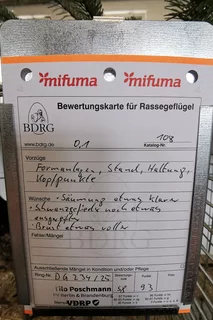 mifuma mifuma
Bewertungskarte für Rassegeflügel
BDRG
www.bdrg.de
0,1
Katalog-Nr.
108
Vorzüge
Formanlagen, Stand, Haltung,
Kopfpunkte
Wünsche - Säumung etwas klarer
- Schwanzgefieder noch etwas
- Brust etwas voller
Fehler/Mängel
Ausschließende Mängel in Kondition und/oder Pflege
Ring-Nr.
DG 234/25
Tilo Poschmann
SV Berlin & Brandenburg
VDRP
93